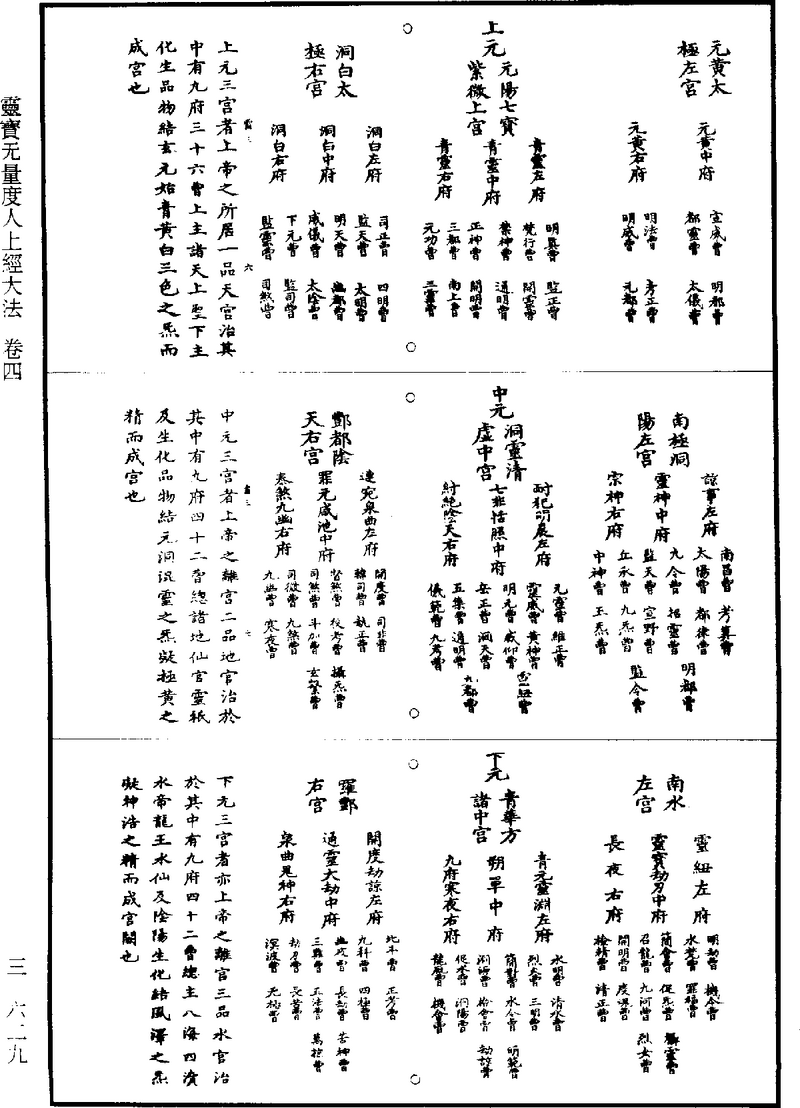 靈寶无量度人上經大法　卷四
三　六二九
元黃太
極左宮
元黃中府
元黃右府
宣威曹　明都曹
都靈曹　太儀曹
明法曹　考正曹
明威曹　元都曹
上元
元陽七寶
紫微上宮
青靈左府
青靈中府
青靈右府
明真曹　監正曹
梵行曹　開雲曹
禁神曹　通明曹
正神曹　開明曹
三都曹　南上曹
元功曹　三靈曹
洞白太
極右宮
洞白左府
洞白中府
洞白右府
司正曹　四明曹
監天曹　太明曹
明天曹　幽都曹
威儀曹　太陰曹
下元曹　監司曹
監靈曹　司煞曹
上元三宮者上帝之所居一品天宮治其
中有九府三十六曹上主諸天上聖下主
化生品物結玄元始青黃白三色之炁而
成宮也
南極洞
陽左宮
諒事左府
靈神中府
宗神右府
南昌曹　考算曹
太陽曹　都律曹
九令曹　招靈曹　明都曹
監天曹　宣野曹
丘丞曹　九炁曹　監令曹
中神曹　玉炁曹
中元
洞靈清
虛中宮
酎犯明晨左府
七非恬照中府
紂絕陰天右府
元靈曹　維正曹
靈威曹　黃神曹
明元曹　威仰曹
岳正曹　洞天曹
五集曹　通明曹　九都曹
儀範曹　九考曹
酆都陰
天右宮
連宛泉曲左府
罪元咸池中府
泰煞九幽右府
開度曹　司非曹
韓司曹　執正曹
督煞曹　校考曹　攝炁曹
司煞曹
司徵曹　九煞曹
九幽曹　寒夜曹
中元三宮者上帝之離宮二品地官治於
其中有九府四十二曹總諸地仙官靈祇
及生化品物結元洞混靈之炁凝極黃之
精而成宮也
南水
左宮
靈紐左府
靈寶劫刃中府
長夜右府
明劫曹　機令曹
水梵曹　罪福曹
簡會曹　促炁曹　攝靈曹
召龍曹　九河曹　烈女曹
開明曹　度溟曹
檢精曹　清正曹
下元
青華方
諸中宮
青元靈淵左府
朔單中府
九府寒夜右府
水明曹　清水曹
烈女曹　三明曹
簡對曹　水令曹　明範曹
促水曹　洞陽曹
龍威曹　機會曹
羅酆
右宮
開度劫諒左府
通靈大劫中府
泉曲鬼神右府
北斗曹　正考曹
九科曹　四極曹
幽攻曹　長劫曹　苦神曹
劫刃曹　長苦曹
溟波曹
下元三宮者亦上帝之離宮三品水官治
於其中有九府四十二曹總主八海四瀆
水帝龍王水仙及陰陽生化結風澤之炁
凝神浩之精而成宮闕也